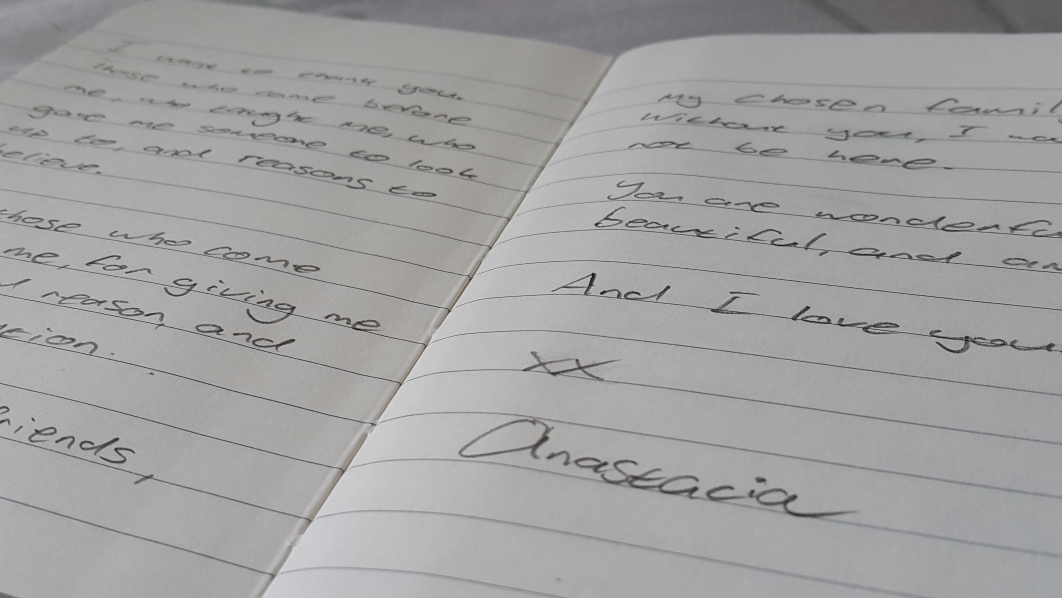 I want to thank you.
Those who came before
me, who taught me, who
gave me someone to look
up to, and reasons to
believe.
those who come
me, for giving me
reason, and
friends,
My chosen famil
Without you, I
not be here.
You are wonderfu
beautiful, and
And I love you
xx
Anastacia